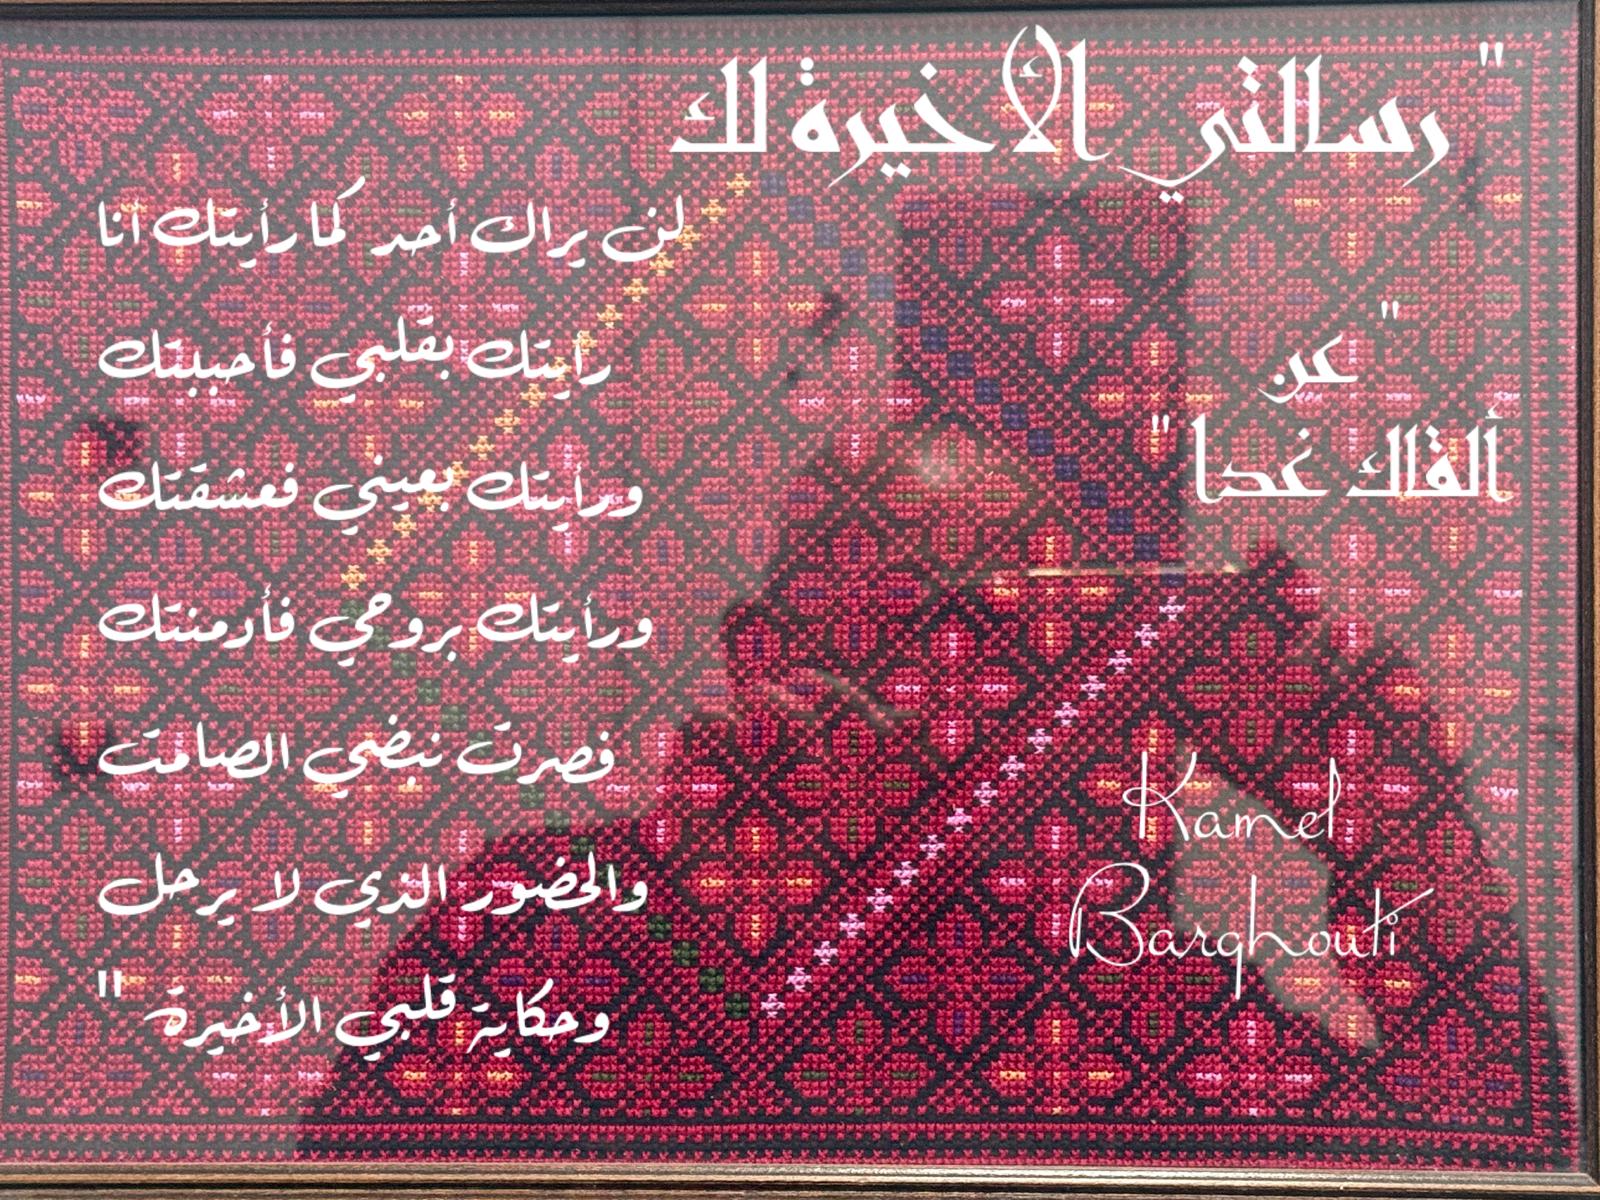 " رسالتي الأخيرة لك
" عن
ألقاك غدا "
لن يراك أحد كما رأيتك أنا
رأيتك بقلبي فأحببتك
ورأيتك بعيني فعشقتك
ورأيتك بروحي فأدمنتك
فصرت نبضي الصامت
والحضور الذي لا يرحل
وحكاية قلبي الأخيرة "
Kamel
Barghouti